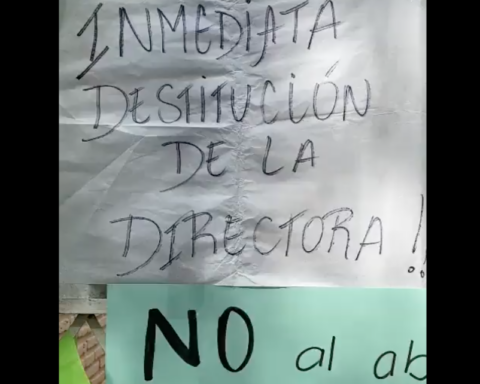 INMEDIATA
DESTITUCIÓN
DE LA
DIRECTORA!!
NO al ab